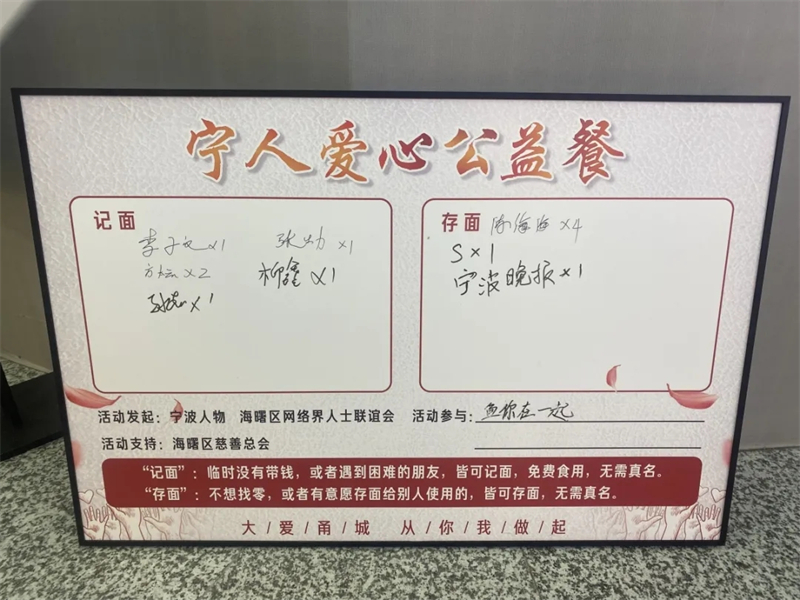 宁人爱心公益餐
记面
李子文x1 张x1
方坛x2 柳鑫x1
x1
存面 海x4
Sx1
宁波晚报x1
活动发起：宁波人物 海曙区网络界人士联谊会 活动参与：鱼你在一起
活动支持：海曙区慈善总会
“记面”：临时没有带钱，或者遇到困难的朋友，皆可记面，免费食用，无需真名。
“存面”：不想找零，或者有意愿存面给别人使用的，皆可存面，无需真名。
大/爱/甬/城 从/你/我/做/起